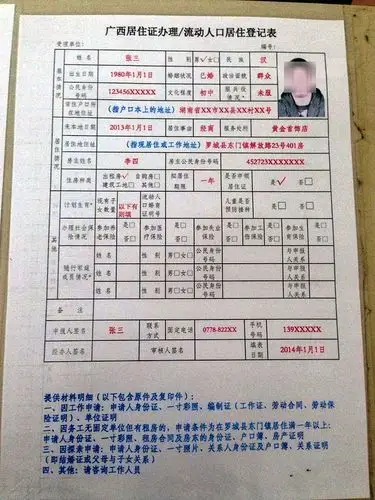 广西居住证办理/流动人口居住登记表
受理单位: 编号:
姓名 张三 性别 男√女□ 民族 汉
出生日期 1980年1月1日 婚姻状况 已婚 政治面貌 群众
公民身份号码 123456XXXXX 文化程度 初中 服兵役情况* 未服
常住户口所在地住址 (指户口本上的地址) 湖南省XX市XX县XX村XX号
来本地日期 2013年1月1日 居住事由 经商 服务处所 黄金首饰店
居住地住址 (指现居住或工作地址) 罗城县东门镇解放路23号401房
房主姓名 李四 房主公民身份号码 452723XXXXXXX
住房种类 出租房√ 自购房□ 建筑工地□ 其他□ 拟居住期限 一年 是否申领居住证 是√ 否□
计划生育* 现有子女数量 以下有则填 流动人口婚育证明号 儿童是否预防接种 是□ 否□
办理社会保险情况 参加养老保险 是□ 否□ 参加医疗保险 是□ 否□ 参加失业保险 是□ 否□ 参加工伤保险 是□ 否□ 参加生育保险 是□ 否□
随行家庭成员情况*
姓名 性别 男□女□ 公民身份号码 与申报人关系
姓名 性别 男□女□ 公民身份号码 与申报人关系
姓名 性别 男□女□ 公民身份号码 与申报人关系
基本情况
居住情况
其他
备注
申报人签名 张三 联系方式 固定电话 0778-822XX 手机号码 139XXXXX
经办人签名 审核人签名 填表日期 2014年1月1日
提供材料明细(以下包含原件及复印件):
一、因工作申请:申请人身份证、一寸彩照、编制证(工作证、劳动合同、劳动保险证明)、单位证明
二、因务工无固定单位但有租房的,申请条件为在罗城县东门镇居住满一年以上:申请人身份证、一寸彩照、租房合同及房东的身份证、户口簿、房产证明
三、因探亲申请:申请人身份证、一寸照片、关系人身份证及户口簿、关系证明(即结婚证或父母与子女关系)
四、其他:请咨询工作人员